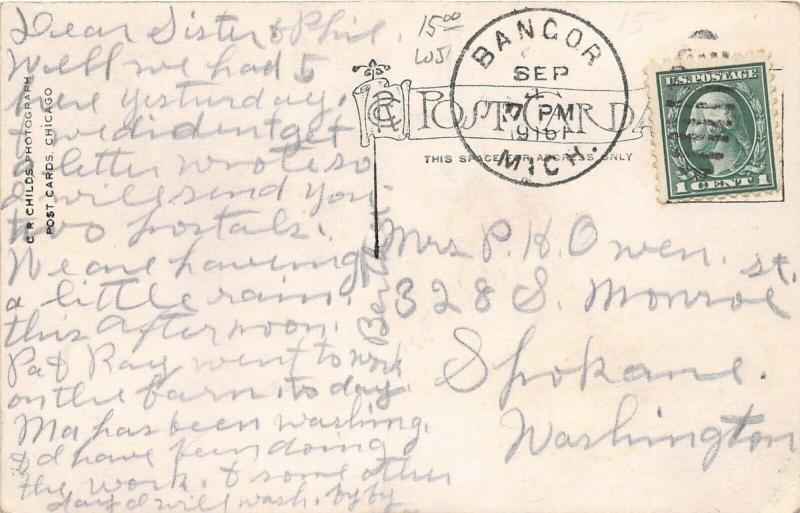 Dear Sister & Phil.
Well we had 5
here yesterday.
I have dident get
a letter wrote so
I will send you
two postals.
We are having
a little rain.
this afternoon.
Pa & Ray went to work
on the barn. to day.
Ma has been washing.
& I have been doing
the work. & some other
day I will wash. by by
C.R. CHILDS, PHOTOGRAPH
POST CARDS, CHICAGO
15.00
POST CARD
THIS SPACE FOR ADDRESS ONLY
BANGOR
SEP
PM
1916
MICH.
U.S. POSTAGE
1 CENT 1
Mrs P. H. Owen.
328 S. Monroe st.
Spokane.
Washington